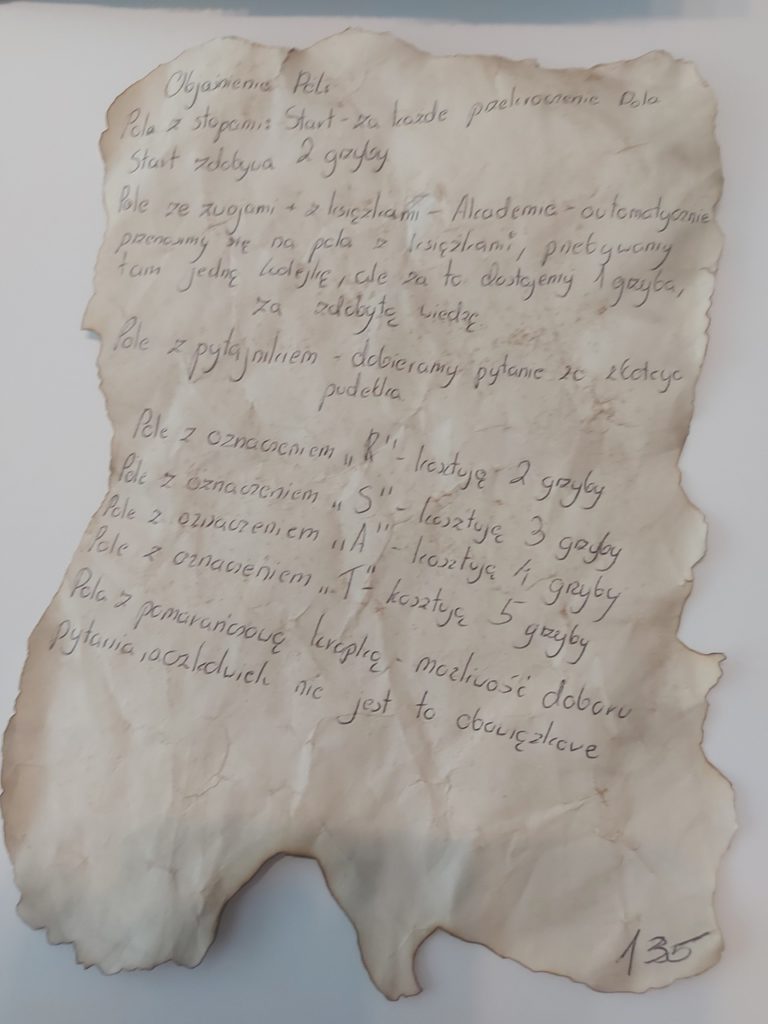 Objaśnienie Pól:
Pola z stopami: Start - za każde przekroczenie Pola
Start zdobywa 2 grzyby
Pole ze zwojami + z książkami - Akademia - automatycznie
przenosimy się na pola z książkami, przebywamy
tam jedną kolejkę, ale za to dostajemy 1 grzyba,
za zdobytą wiedzę
Pole z pytajnikiem - dobieramy pytanie ze złotego
pudełka
Pole z oznaczeniem „R" - kosztują 2 grzyby
Pole z oznaczeniem „S" - kosztują 3 grzyby
Pole z oznaczeniem „A" - kosztują 4 grzyby
Pole z oznaczeniem „T" - kosztują 5 grzyby
Pola z pomarańczową kropką - możliwość doboru
pytania, aczkolwiek nie jest to obowiązkowe
135